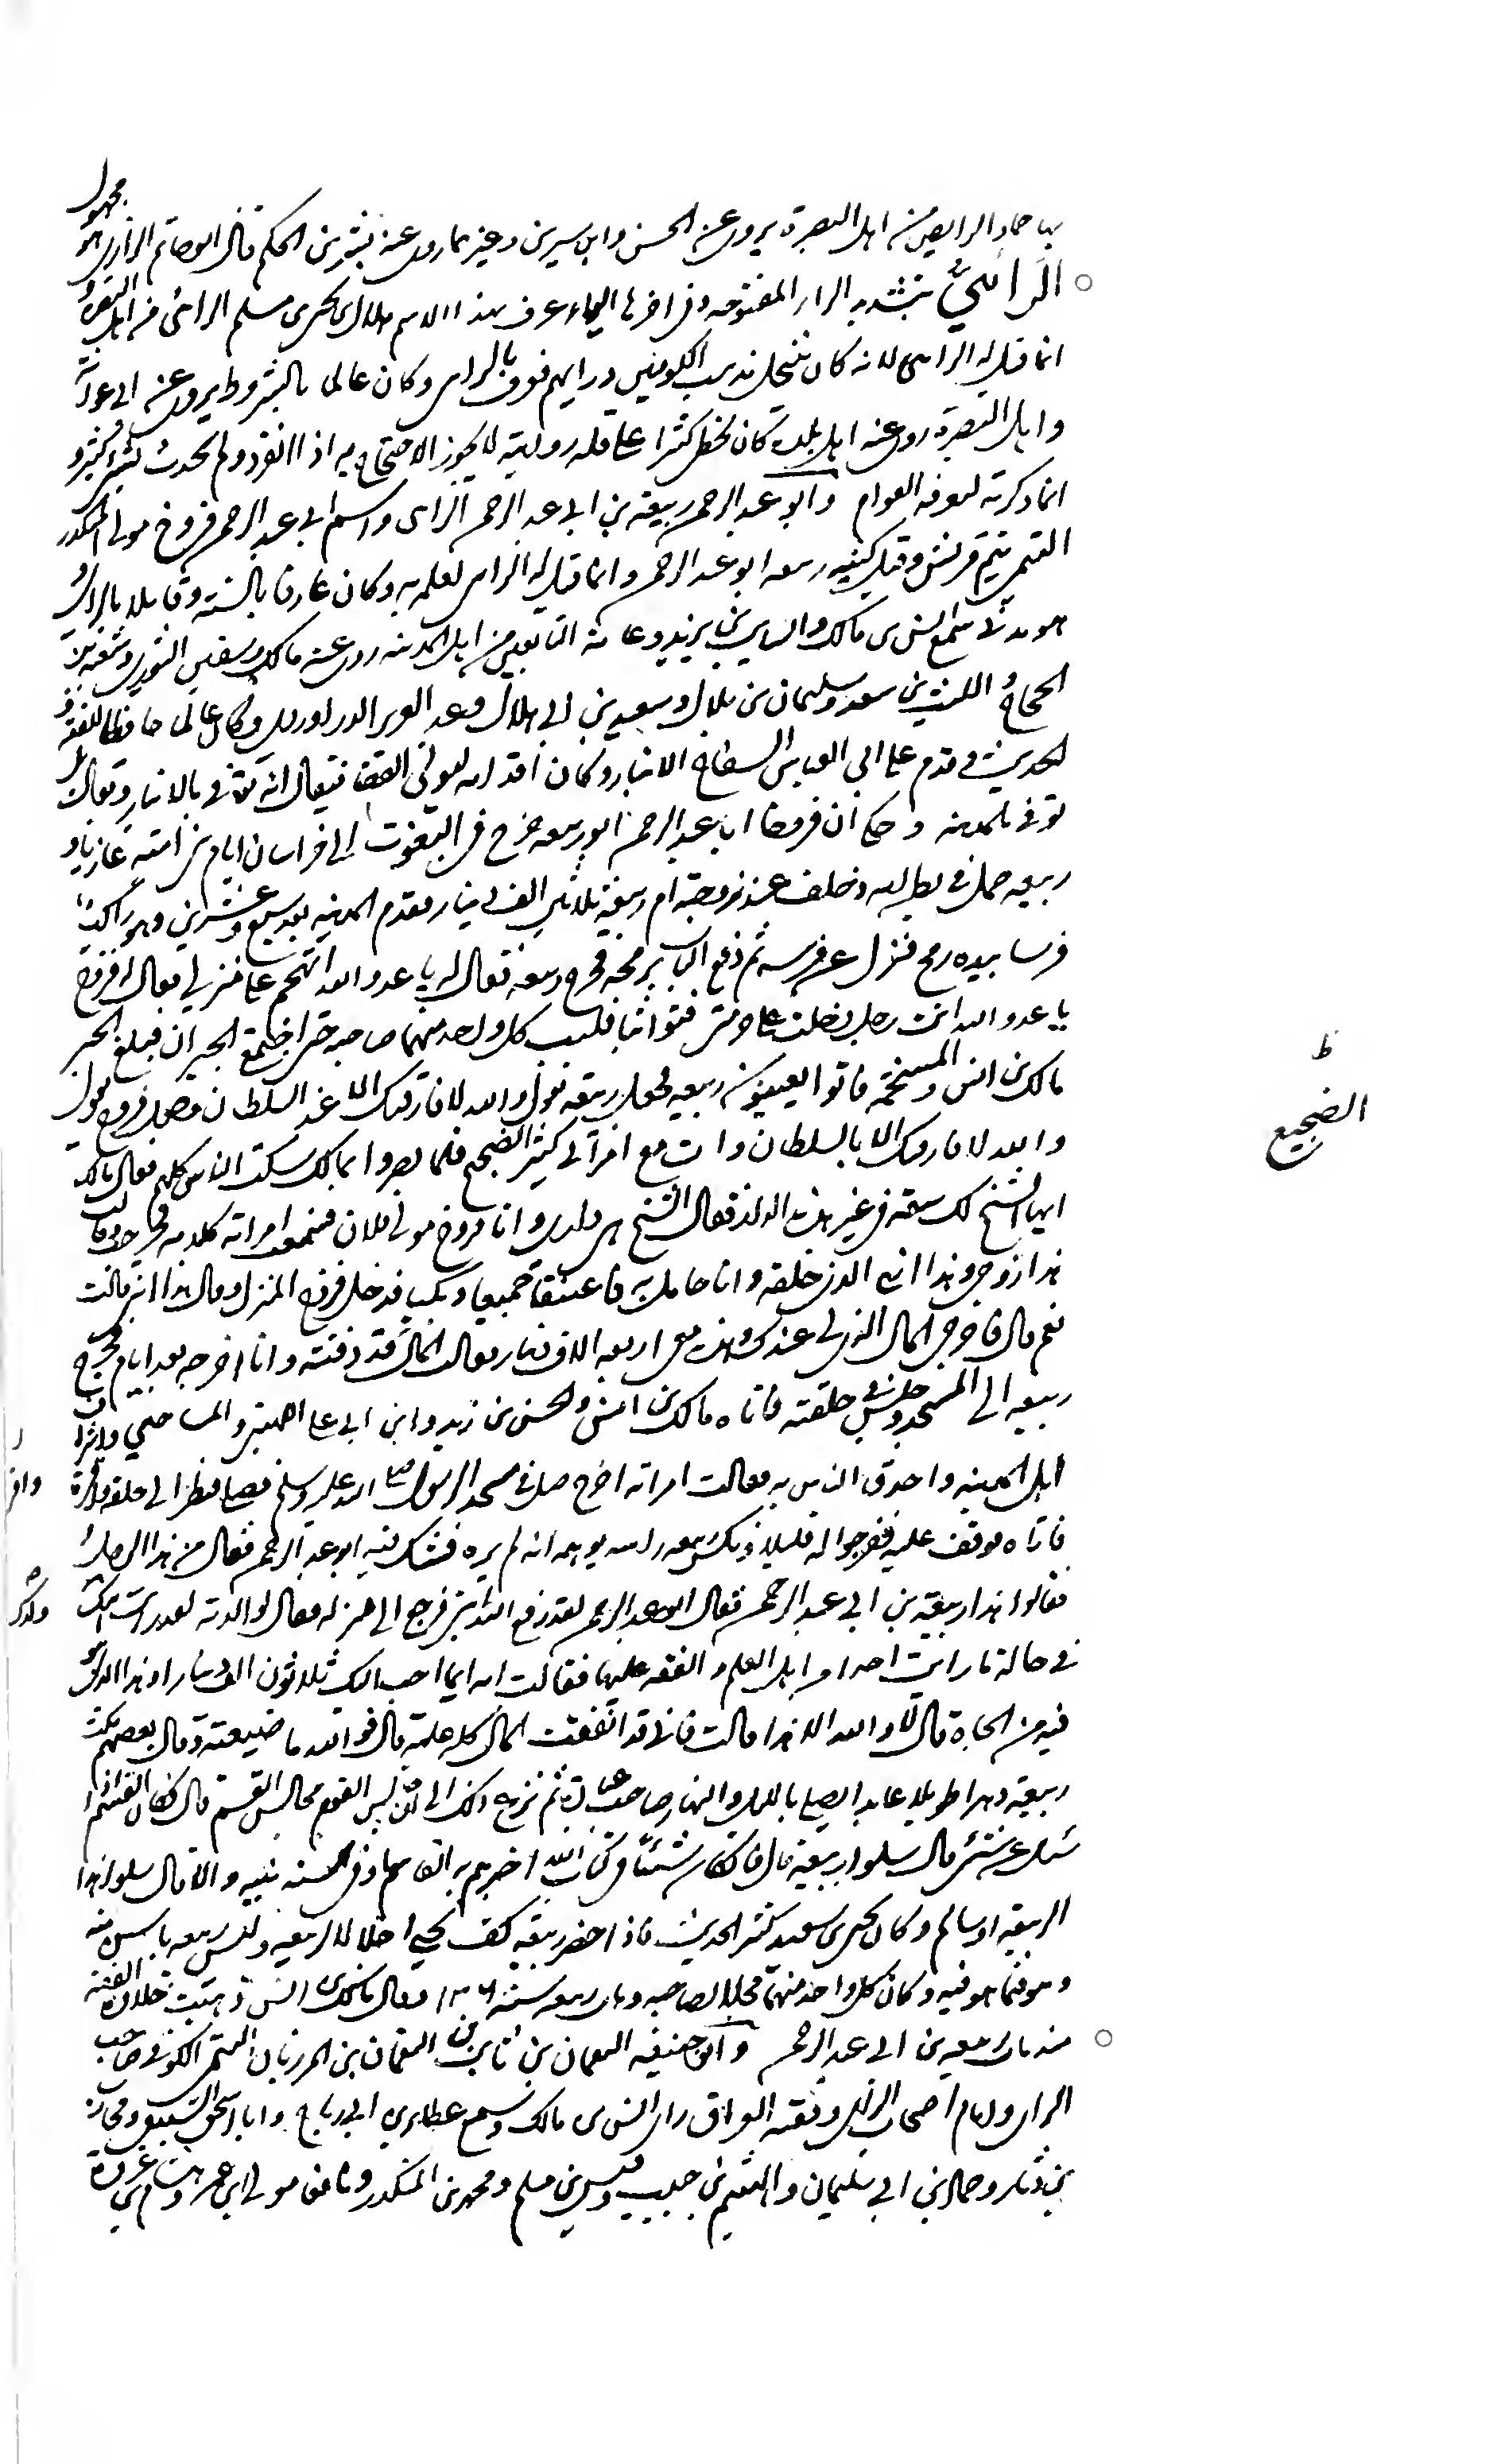 بها حماد الرايض من اهل البصرة يروى عن الحسن وابن سيرين وغيرهما روى عنه بشر بن الحكم قال ابو حاتم الرازى هو مجهول
الرائىّ بتشديد الراء المفتوحة وفى اخرها الياء عرف بهذا الاسم هلال بن يحيى بن مسلم الرائى من اهل البصرة و
انما قيل له الراى لانه كان ينتحل مذهب الكوفيين ورايهم فعرف بالراى وكان عالما بالشروط يروى عن ابى عوانة
واهل البصرة روى عنه اهل بلده كان يخطى كثيرا على قلة روايته لا يجوز الاحتجاج به اذا انفرد ولم يحدث بشىء كثير و
انما ذكرته لمعرفة العوام وابو عبد الرحمن ربيعة بن ابى عبد الرحمن الراى واسم ابى عبد الرحمن فروخ مولى المنكدر
التيمى تيم قريش وقيل كنية ربيعة ابو عبد الرحمن وانما قيل له الراى لعلمه به وكان عارفا بالسنة وقايلا بالراى و
هو مدنى سمع انس بن مالك والسايب بن يزيد وعامة التابعين من اهل المدينة روى عنه مالك وسفين الثورى وشعبة بن
الحجاج والليث بن سعد وسليمان بن بلال وسعيد بن ابى هلال وعبد العزيز الدراوردى وكان عالما حافظا للفقه و
الحديث قدم على ابى العباس السفاح الانبار وكان اقدمه ليولى القضا فيقال انه توفى بالانبار ويقال بل
توفى بالمدينة وحكى ان فروخا ابا عبد الرحمن ابو ربيعة خرج فى البعوث الى خراسان ايام بنى امية غازيا و
ربيعة حمل فى بطن امه وخلف عند زوجته ام ربيعة ثلاثين الف دينار فقدم المدينة بعد سبع وعشرين وهو راكب
فرسا بيده رمح فنزل عن فرسه ثم دفع الباب برمحه فخرج ربيعة فقال له يا عدو الله اتهجم على منزلى فقال فروخ
يا عدو الله انت رجل دخلت على حرمتى فتواثبا فلبب كل واحد منهما صاحبه حتى اجتمع الجيران فبلغ الخبر
مالك بن انس والمشيخة فاتوا يعينون ربيعة فجعل ربيعة يقول والله لا فارقتك الا عند السلطان وجعل فروخ يقول
والله لا فارقتك الا بالسلطان وانت مع امراتى كثر الضجيج فلما بصروا بمالك سكت الناس كلهم فقال مالك
ايها الشيخ لك سعة فى غير هذه الدار فقال الشيخ هى دارى وانا فروخ مولى فلان فسمعت امراته كلامه فخرجت وقالت
هذا زوجى وهذا ابنى الذى خلفه وانا حامل به فاعتنقا جميعا وبكيا فدخل فروخ المنزل وقال هذا ابنى قالت
نعم قال فاخرجى المال الذى لى عندك وهذه معى اربعة الاف دينار فقالت المال قد دفنته وانا اخرجه بعد ايام فخرج
ربيعة الى المسجد وجلس فى حلقته فاتاه مالك بن انس والحسن بن زيد وابن ابى على اللهبى والمساحقى واشراف
اهل المدينة واحدق الناس به فقالت امراته اخرج صل فى مسجد الرسول صلى الله عليه وسلم فصلى فنظر الى حلقة وافرة
فاتاه فوقف عليه ففرجوا له قليلا ونكس ربيعة راسه يوهمه انه لم يره فشك فيه ابو عبد الرحمن فقال من هذا الرجل
فقالوا هذا ربيعة بن ابى عبد الرحمن فقال ابو عبد الرحمن لقد رفع الله ابنى فرجع الى منزله فقال لوالدته لقد رايت ابنك
فى حالة ما رايت احدا من اهل العلم والفقه عليها فقالت امه ايما احب اليك ثلاثون الف دينار او هذا الذى هو
فيه من الجاه قال لا والله الا هذا قالت فانى قد انفقت المال كله عليه قال فو الله ما ضيعته وقال بعضهم مكث
ربيعة دهرا طويلا عابدا يصلى بالليل والنهار صاحب عبادة ثم نزع ذلك الى ان جالس القوم فجالس القسم قال فكان القسم اذا
سئل عن شىء قال سلوا ربيعة قال فان كان شيئا فى كتاب الله اخبرهم به القاسم او فى سنة نبيه والا قال سلوا هذا
لربيعة او سالم وكان يحيى بن سعيد كثير الحديث فاذا حضر ربيعة كف يحيى اجلالا لربيعة وليس ربيعة باسن منه
وهو فيما هو فيه وكان كل واحد منهما مجلا لصاحبه ومات ربيعة سنة ١٣٦ وقال مالك بن انس ذهبت حلاوة الفقه
منذ مات ربيعة بن ابى عبد الرحمن وابو حنيفة النعمان بن ثابت بن النعمان بن المرزبان التيمى الكوفى صاحب
الراى وامام اصحاب الراى وفقيه العراق راى انس بن مالك وسمع عطا بن ابى رباح وابا اسحق السبيعى ومحارب
بن دثار وحماد بن ابى سليمان والهيثم بن حبيب وقيس بن مسلم ومحمد بن المنكدر ونافعا مولى ابن عمر وهشام بن عروة
ظ
الضجيع